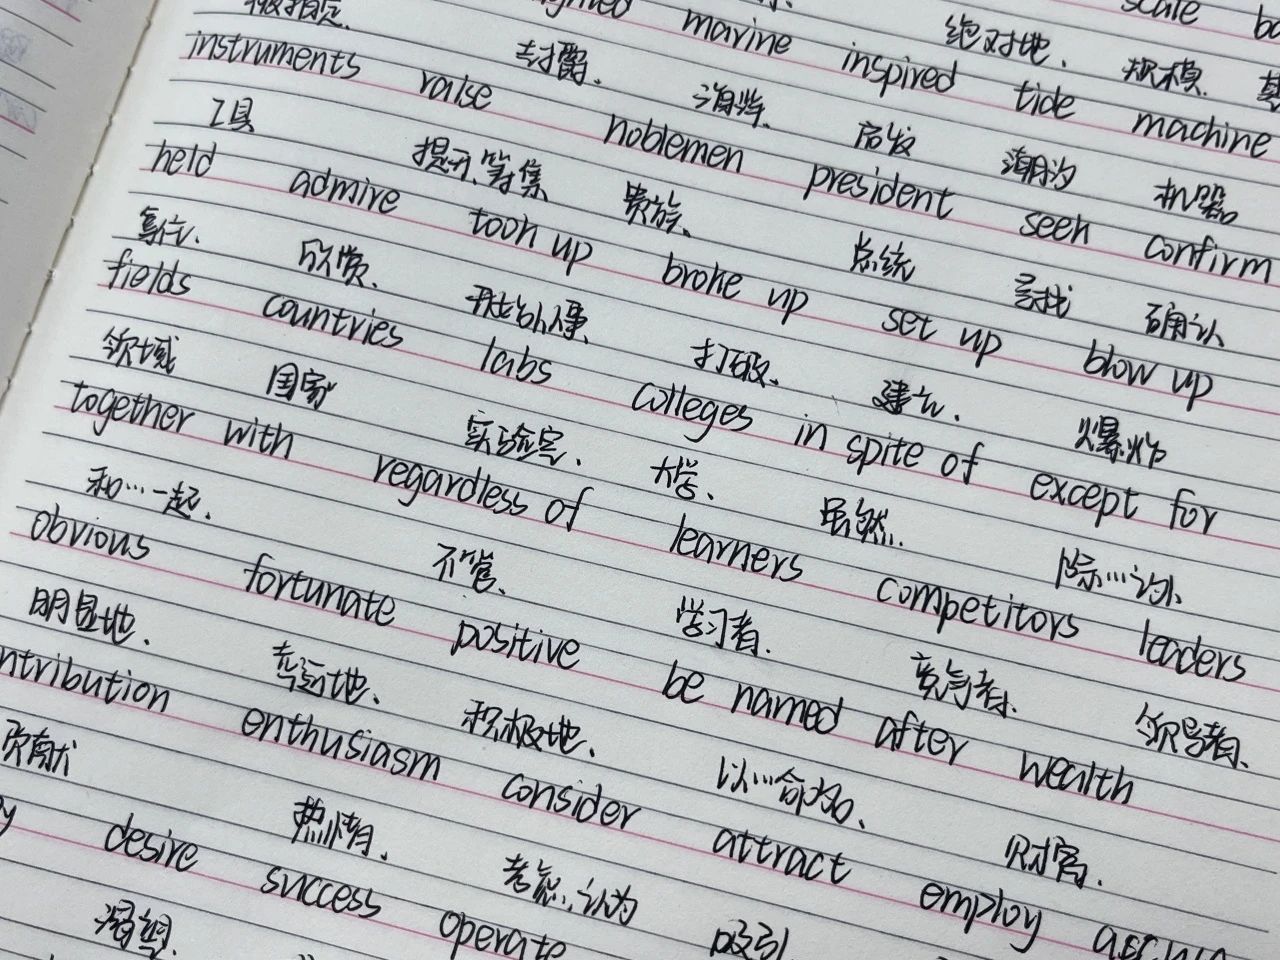 scale
marine inspired tide machine
被指定. 封爵. 海洋. 绝对地. 规模.
instruments raise noblemen president seek confirm
工具 提升、筹集 贵族、 启发 潮汐 机器。
held admire took up broke up set up blow up
欣赏. 开始从事、 打破、 总统 寻找 确认
fields countries labs colleges in spite of except for
领域 国家 实验室、 大学、 建立. 爆炸
together with regardless of learners competitors leaders
和…一起. 不管、 学习者. 虽然. 除…以外、
obvious fortunate positive be named after wealth
明显地、 幸运地、 积极地、 竞争者. 领导者.
ntribution enthusiasm consider attract employ
贡献 热情、 考虑、认为 以…命为、 财富、
desire success operate
渴望. 吸引.